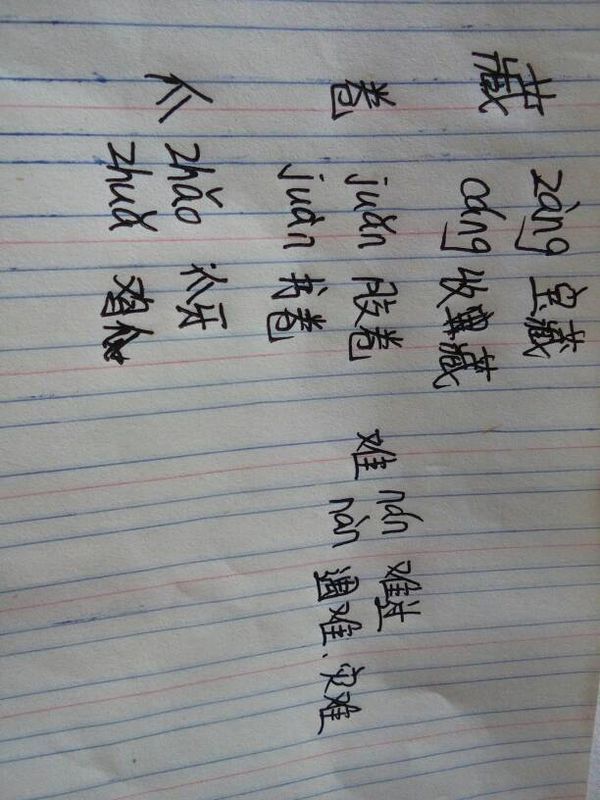 zàng 宝藏
藏
cáng 收典藏
juǎn 胶卷
卷
juàn 书卷
zhǎo 爪牙
爪
zhuǎ 鸡爪
nán 难过
难
nàn 遇难、灾难